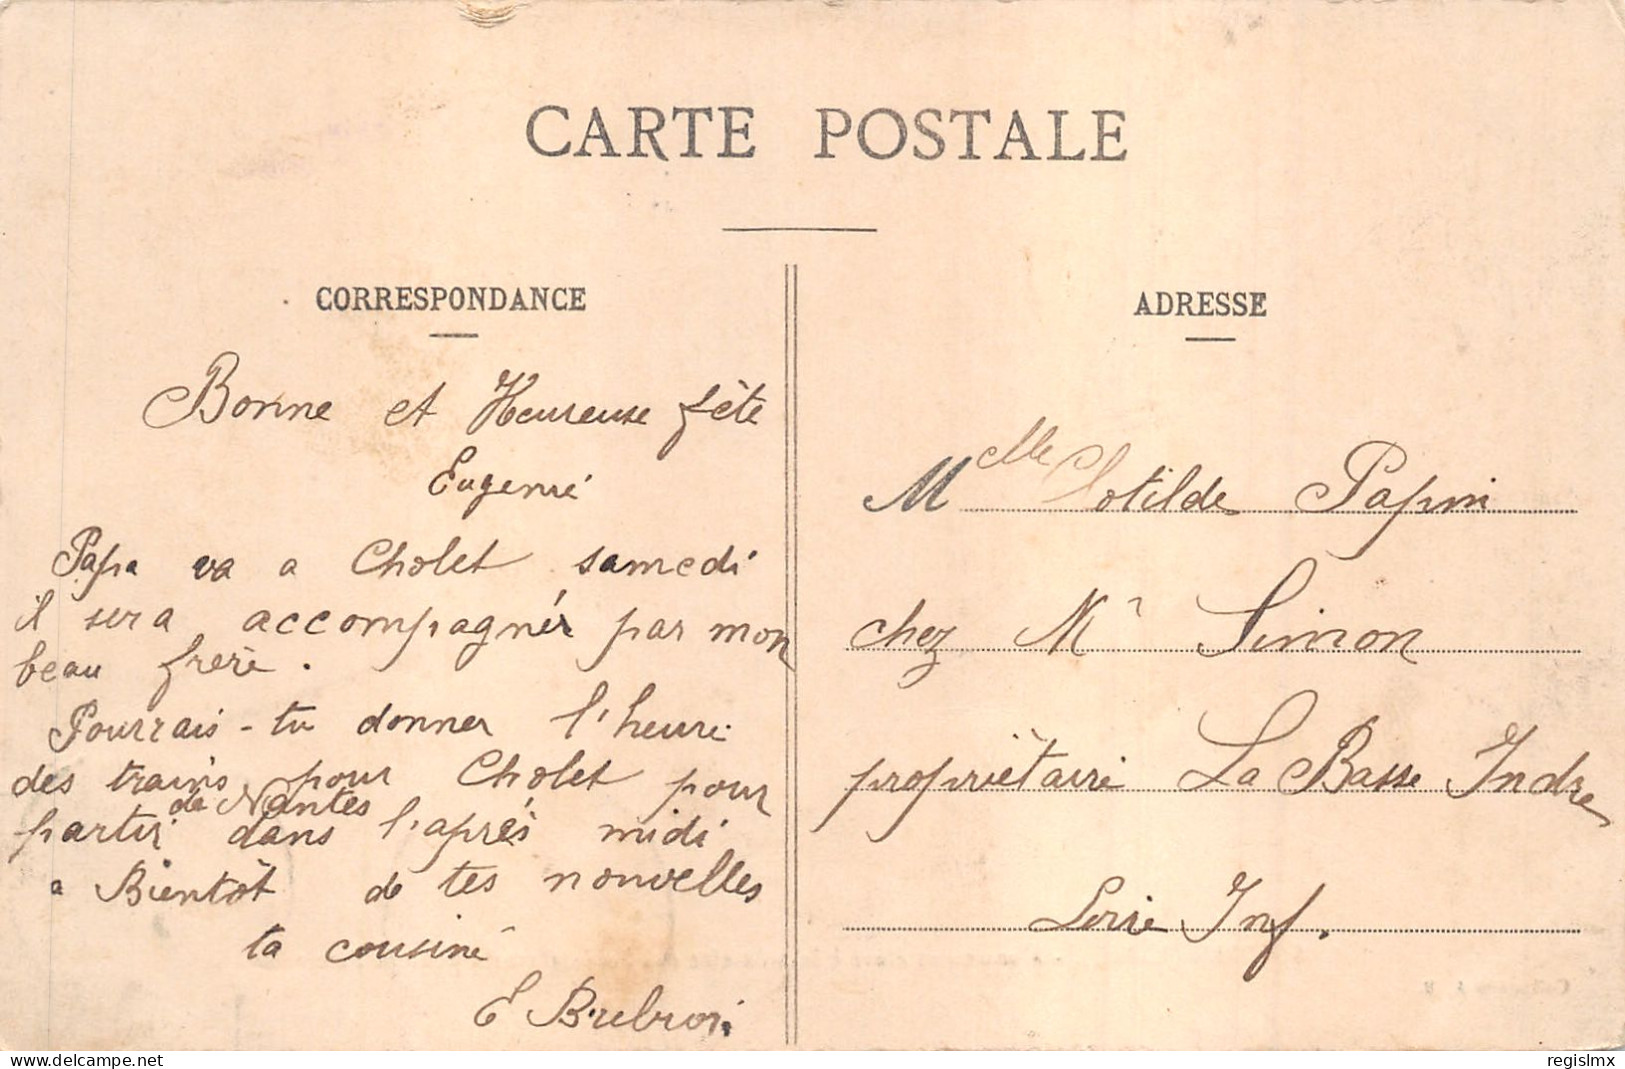 CARTE POSTALE
CORRESPONDANCE
Bonne et Heureuse fête
Eugenie
Papa va a Cholet samedi
il sera accompagnér par mon
beau frere.
Pourrais-tu donner l'heure
des trains pour Cholet pour
de Nantes
partir dans l'après midi
a Bientôt de tes nouvelles
ta cousine
E
ADRESSE
Melle Clotilde Papin
chez Mr Simon
propriètaire La Basse Indre
Loire Inf.
delcampe.net
regislmx